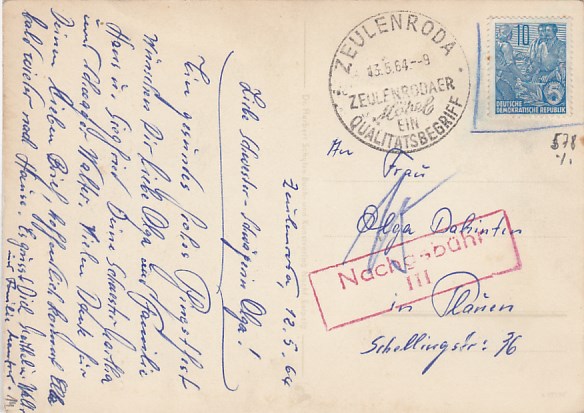 Zeulenroda, 12.5.64
Liebe Schwester - Schwägerin Olga!
Ein gesundes frohes Pfingstfest
wünschen Dir liebe Olga und Familie
Hans u. Siegfried Deine Schwester Martha
und Schwager Walter. Vielen Dank für
Deinen lieben Brief, hoffentlich kommt
bald wieder nach Hause. Es grüsst Dich
und Familie
ZEULENRODA
13.5.64.-9
ZEULENRODAER
Möbel
EIN
QUALITÄTSBEGRIFF
10
5
DEUTSCHE
DEMOKRATISCHE REPUBLIK
578
An Frau
Olga
Nachgebühr
III
in Plauen
Schellingstr: 36